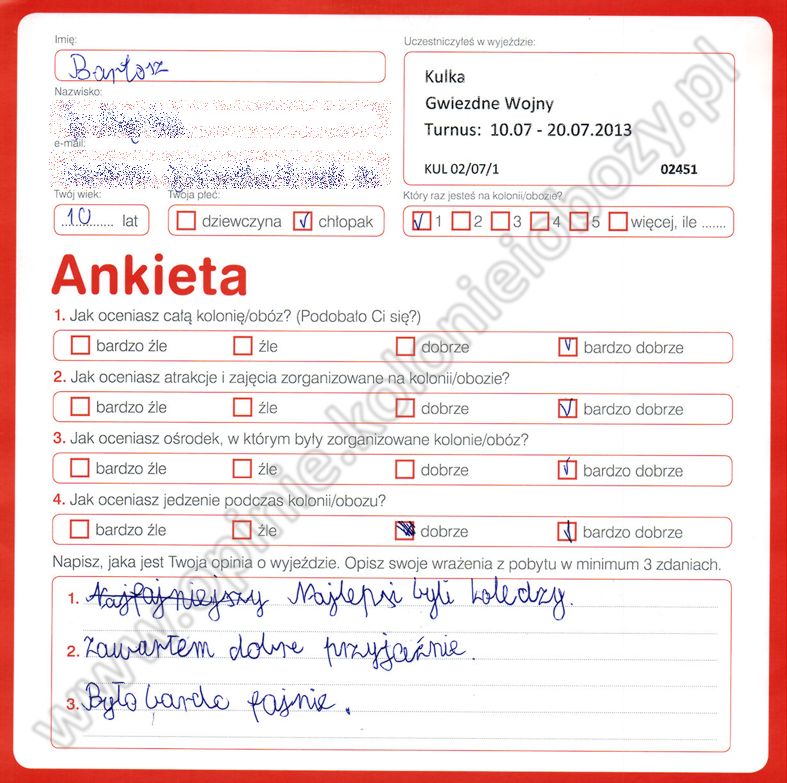 Imię:
Bartosz
Uczestniczyłeś w wyjeździe:
Kulka
Gwiezdne Wojny
Turnus: 10.07 - 20.07.2013
KUL 02/07/1 02451
Nazwisko:
e-mail:
Twój wiek:
10 lat
Twoja płeć:
dziewczyna chłopak
Który raz jesteś na kolonii/obozie?
1 2 3 4 5 więcej, ile .......
Ankieta
1. Jak oceniasz całą kolonię/obóz? (Podobało Ci się?)
bardzo źle źle dobrze bardzo dobrze
2. Jak oceniasz atrakcje i zajęcia zorganizowane na kolonii/obozie?
bardzo źle źle dobrze bardzo dobrze
3. Jak oceniasz ośrodek, w którym były zorganizowane kolonie/obóz?
bardzo źle źle dobrze bardzo dobrze
4. Jak oceniasz jedzenie podczas kolonii/obozu?
bardzo źle źle dobrze bardzo dobrze
Napisz, jaka jest Twoja opinia o wyjeździe. Opisz swoje wrażenia z pobytu w minimum 3 zdaniach.
1. Najfajniejszy Najlepsi byli koledzy.
2. Zawarłem dobre przyjaźnie.
3. Było bardo fajnie.
www.opinie.kolonieiobozy.pl